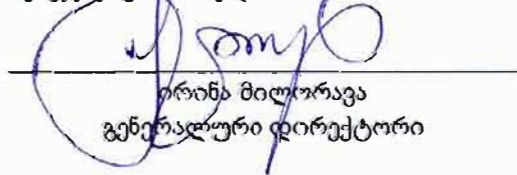 ირინა მილორავა
გენერალური დირექტორი